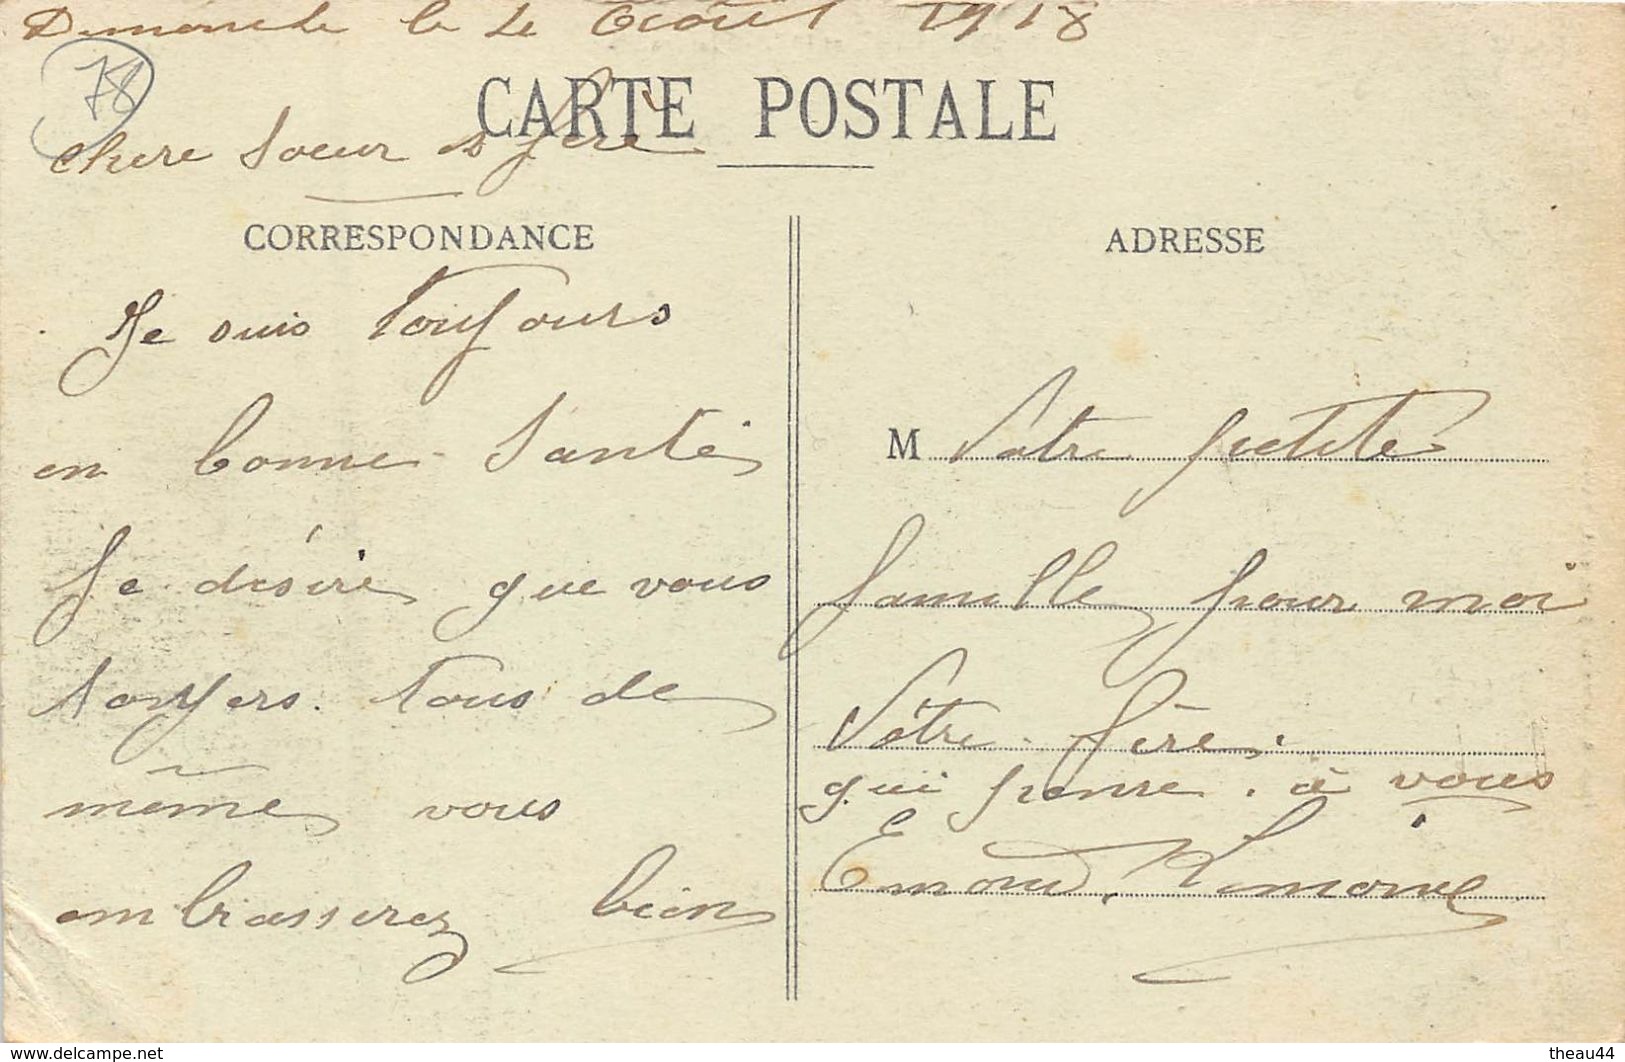 Dimanche le 4 Août 1918
78
CARTE POSTALE
Chere Soeur et frere
CORRESPONDANCE
Je suis toujours
en bonne Santé
Je désire que vous
soyers tous de
même vous
embrasserez bien
ADRESSE
M Votre petite
famille pour moi
Votre frère
qui pense à vous
www.delcampe.net
theau44